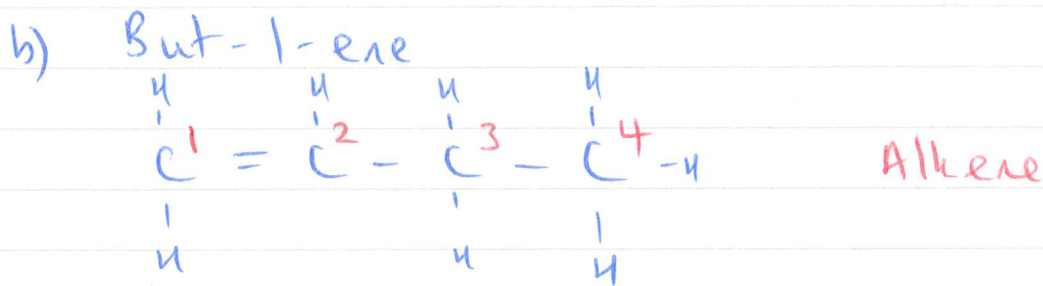 b) But-1-ene
H H H H
C1 = C2 - C3 - C4 -H Alkene
H H H